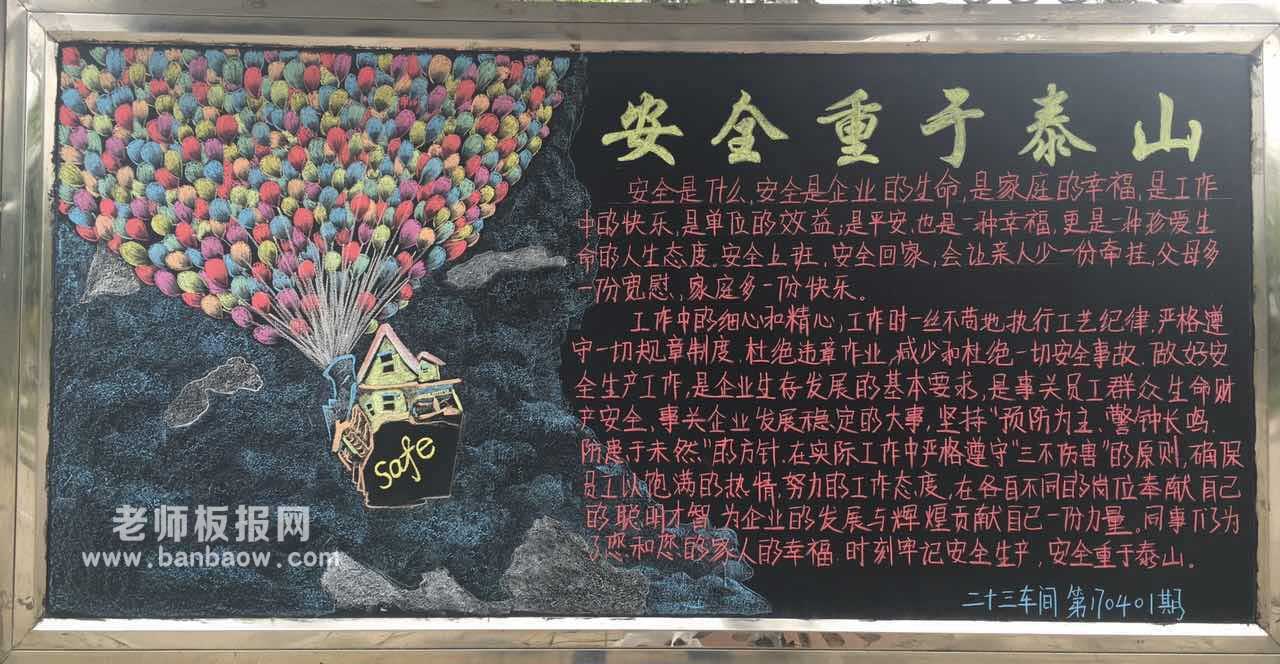 安全重于泰山
安全是什么,安全是企业的生命,是家庭的幸福,是工作
中的快乐,是单位的效益,是平安,也是一种幸福,更是一种珍爱生
命的人生态度。安全上班,安全回家,会让亲人少一份牵挂,父母多
一份宽慰,家庭多一份快乐。
工作中的细心和精心,工作时一丝不苟地执行工艺纪律,严格遵
守一切规章制度,杜绝违章作业,减少和杜绝一切安全事故,做好安
全生产工作,是企业生存发展的基本要求,是事关员工群众生命财
产安全,事关企业发展稳定的大事,坚持“预防为主、警钟长鸣,
防患于未然”的方针,在实际工作中严格遵守“三不伤害”的原则,确保
员工以饱满的热情,努力的工作态度,在各自不同的岗位奉献自己
的聪明才智,为企业的发展与辉煌贡献自己一份力量。同事们为
了您和您的家人的幸福,时刻牢记安全生产,安全重于泰山。
二十三车间 第170401期
safe
老师板报网
www.banbaow.com